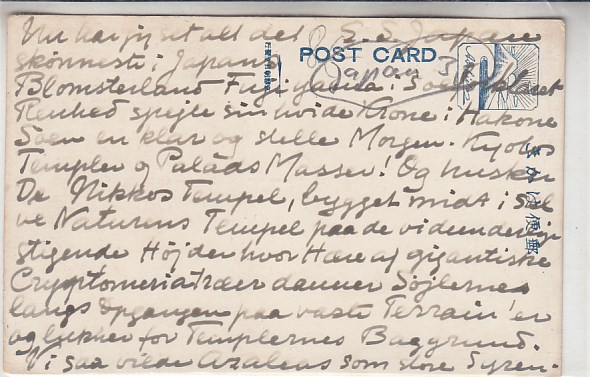 Nu har jeg set alt det
S.S. Japan
skønneste i Japans
POST CARD
Japan 3
Blomsterland Fujiyama i Soens klaret
Renhed spejle sin hvide Krone i Hakone
Soen en klar og stille Morgen. Kyotos
Templer og Paláds Masser! Og husker
De Nikkos Tempel, bygget midt i sel
ve Naturens Tempel paa de vidunderlige
stigende Højder hvor Hære af gigantiske
Cryptomeriatræer danner Søjlernes
langs Opgangen paa vaste Terrain'er
og lukker for Templernes Baggrund.
Vi saa vilde Azaleas som store Syren-
きかは便郵